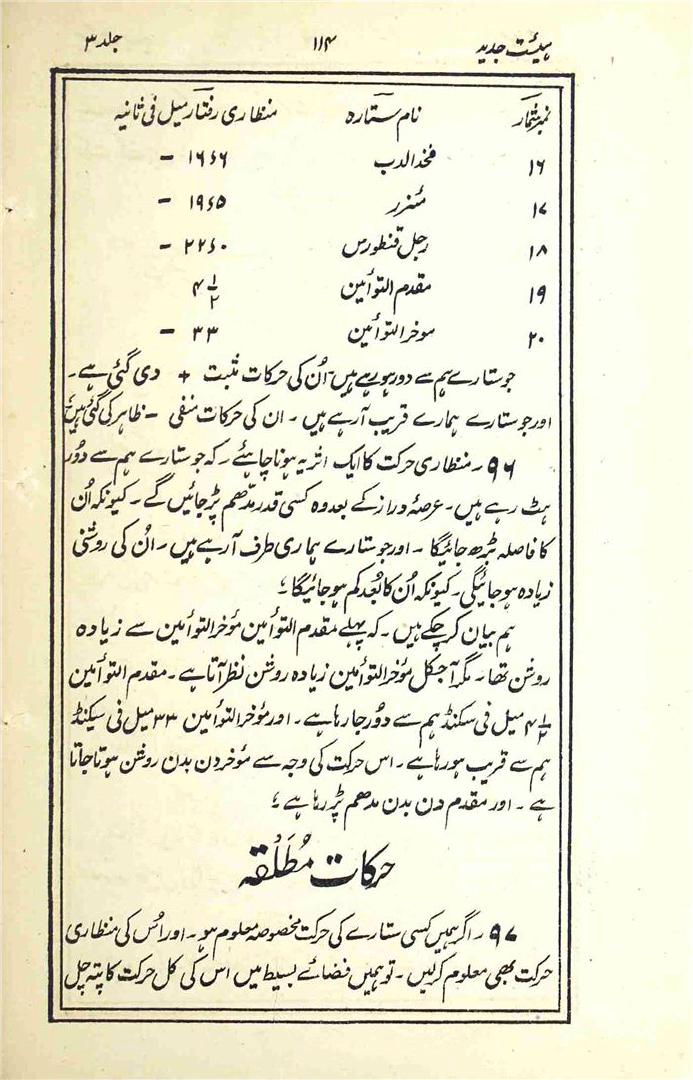 ہیئت جدید ۱۱۴ جلد ۳
نمبر شمار نام ستارہ منظاری رفتار میل فی ثانیہ
۱۶ فخذ الدب ۱۶ء۶ −
۱۷ مئزر ۱۹ء۵ −
۱۸ رجل قنطورس ۲۲ء۰ −
۱۹ مقدم التوأمین ۴ ۱/۲
۲۰ موخر التوأمین ۳۳ −
جو ستارے ہم سے دور ہو رہے ہیں۔ اُن کی حرکات مثبت + دی گئی ہے۔
اور جو ستارے ہمارے قریب آ رہے ہیں۔ ان کی حرکات منفی − ظاہر کی گئی ہیں؛
۹۶۔ منظاری حرکت کا ایک اثر یہ ہونا چاہئے۔ کہ جو ستارے ہم سے دُور
ہٹ رہے ہیں۔ عرصۂ دراز کے بعد وہ کسی قدر مدّھم پڑ جائیں گے۔ کیونکہ اُن
کا فاصلہ بڑھ جائیگا۔ اور جو ستارے ہماری طرف آ رہے ہیں۔ اُن کی روشنی
زیادہ ہو جائیگی۔ کیونکہ اُن کا بُعد کم ہو جائیگا؛
ہم بیان کر چکے ہیں۔ کہ پہلے مقدم التوأمین مؤخر التوأمین سے زیادہ
روشن تھا۔ مگر آجکل مؤخر التوأمین زیادہ روشن نظر آتا ہے۔ مقدم التوأمین
۴ ۱/۲ میل فی سکنڈ ہم سے دُور جا رہا ہے۔ اور مؤخر التوأمین ۳۳ میل فی سیکنڈ
ہم سے قریب ہو رہا ہے۔ اس حرکت کی وجہ سے مؤخر دن بدن روشن ہوتا جاتا
ہے۔ اور مقدم دن بدن مدھم پڑ رہا ہے؛
حرکات مُطلَقہ
۹۷۔ اگر ہمیں کسی ستارے کی حرکت مخصوصہ معلوم ہو۔ اور اُس کی منظاری
حرکت بھی معلوم کر لیں۔ تو ہمیں فضائے بسیط میں اس کی کل حرکت کا پتہ چل